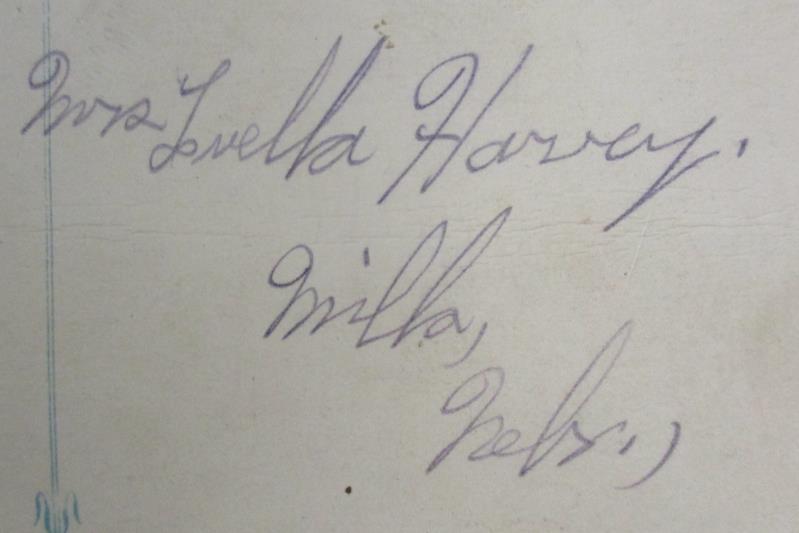 Mrs Luella Harvey.
Mills,
Nebr.,